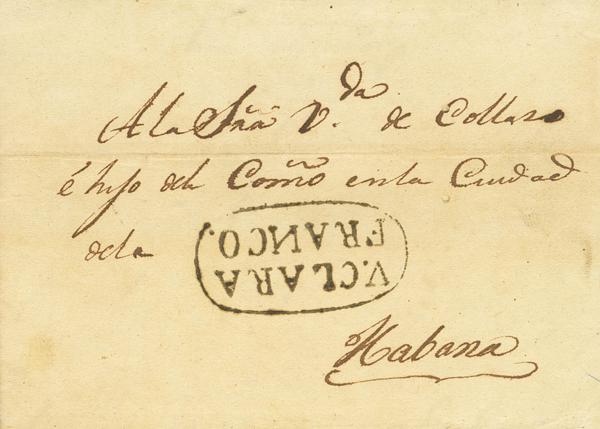 A la Sñã V.da de Collazo
é hijo del Comño en la Ciudad
de la
V.CLARA
FRANCO.
Habana